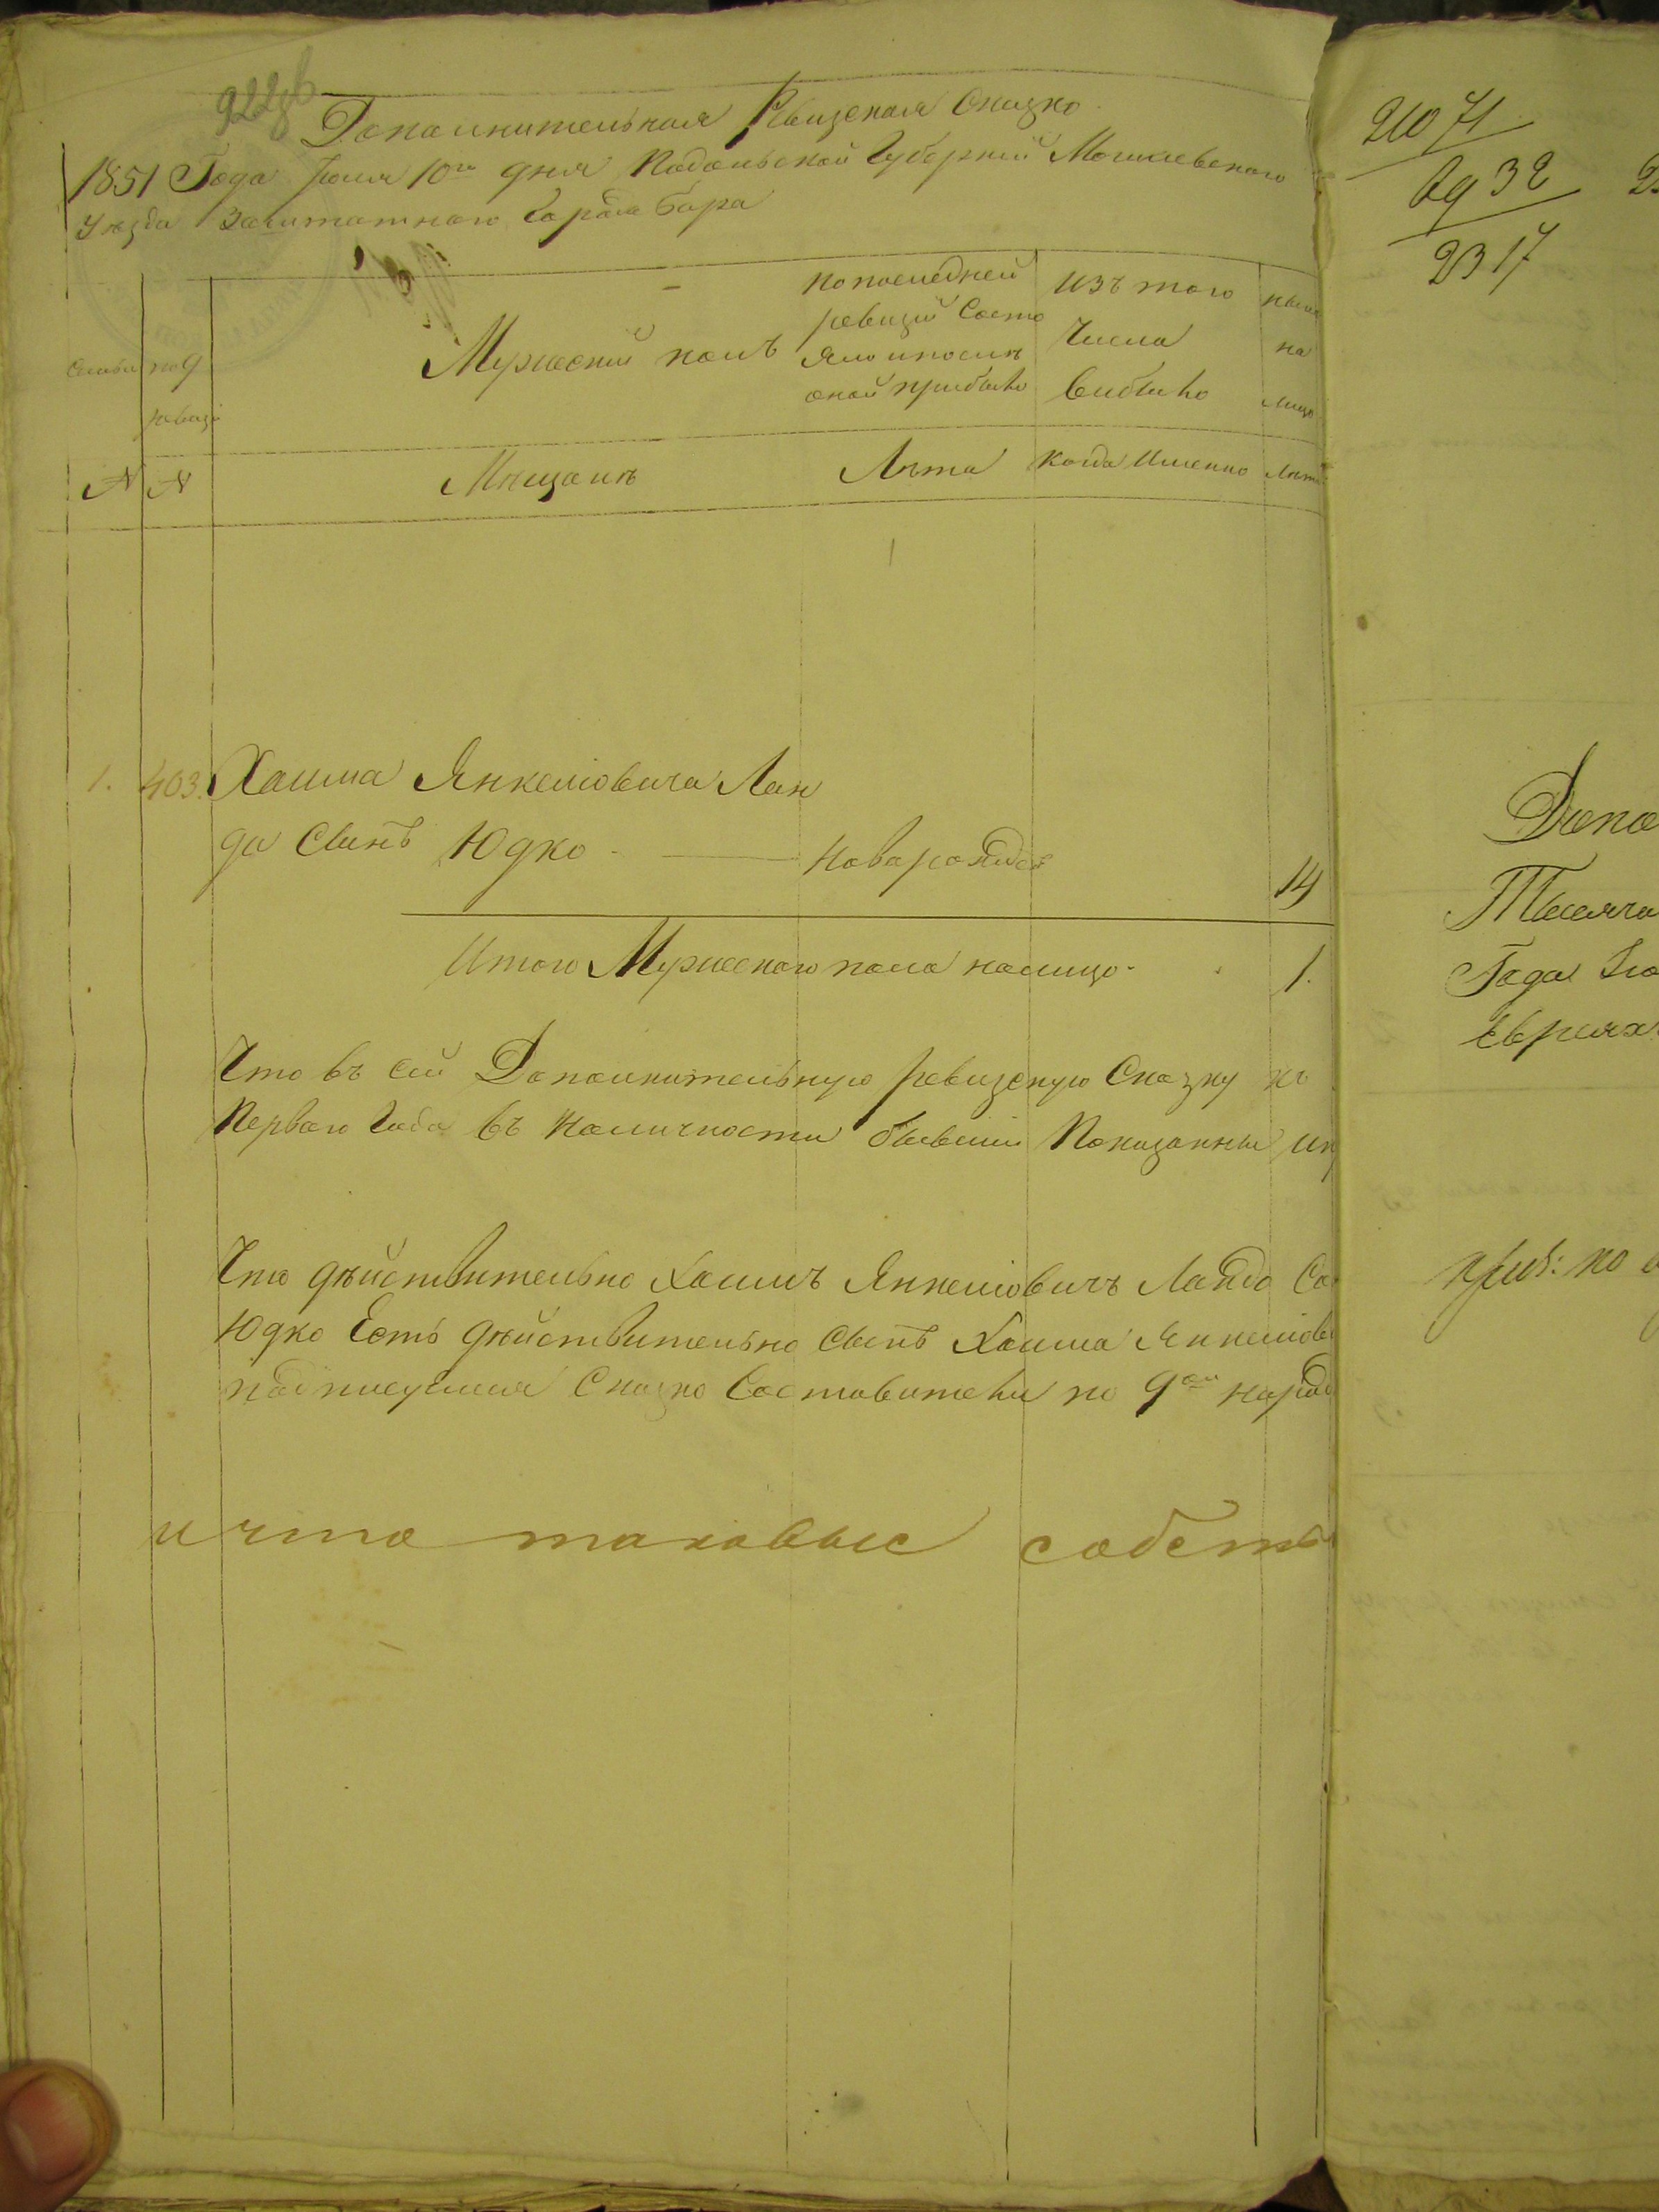 Дополнительная Ревизская Сказка
1851 Года Июля 10го дня Подольской Губернии Могилевского
Уезда Заштатного Города Бара
Семьи
по 9
ревизі
Мужеский полъ
по последней
ревизіи Состо
яло и после
оной прибыло
Изъ того
Числа
выбыло
ныне
на
лицо
N
N
Мещанъ
Лета
Когда Именно
Лета
1. 403. Хаима Янкеліовича Лан
да Сынъ Юдко — Новорожден 14
Итого Мужеского пола налицо 1.
Что въ сей Дополнительную ревизскую Сказку
Перваго Года въ Наличности бывшии Показанны
Что действительно Хаимъ Янкеліовичъ Ландо
Юдко Есть действительно Сынъ Хаима Янкеліов
Сказко Составители по 9ой народ
и что таковые собств
210 71
2317
Допо
Тысяча
Года
Евреях
приб: по